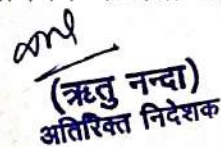 (ऋतु नन्दा)
अतिरिक्त निदेशक